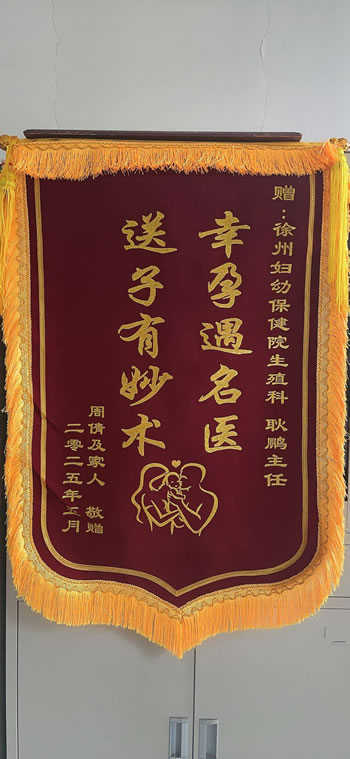 赠：徐州妇幼保健院生殖科 耿鹏主任
幸孕遇名医
送子有妙术
周倩及家人 敬赠
二零二五年五月